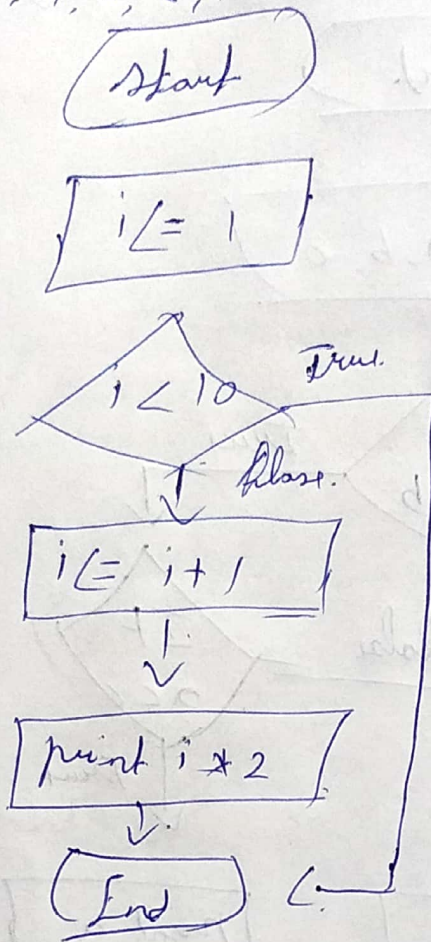 Start
i <= 1
i < 10
True.
false.
i <= i + 1
print i * 2
End